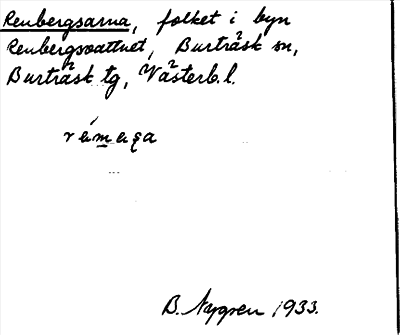 Renbergsarna, folket i byn
Renbergsvattnet, Burträsk sn,
Burträsk tg, Västerb. l.
B. Nygren 1933.